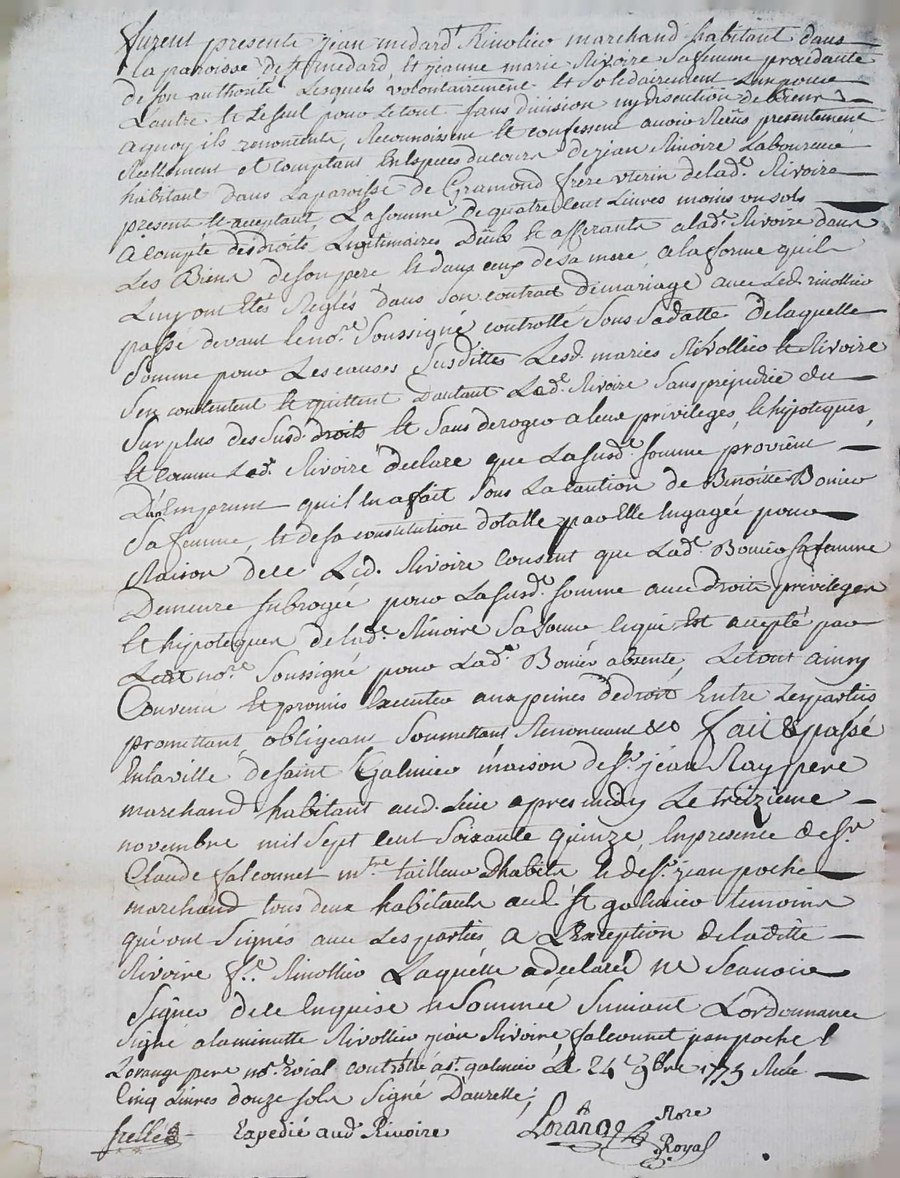 furent presents jean medard Rivollier marchand habitant dans
la paroisse de st medard, et jeanne marie Rivoire sa femme procedante
de son authorité Lesquels volontairement et solidairement Lun pour
Lautre et Le seul pour Le tout sans division ny discution de biens
a quoy ils renoncents, Reconnoissent et confessent avoir Reçus presentement
Reellement et comptant En Especes du cours de jean Rivoire Laboureur
habitant dans La paroisse de Gramond frere uterin de lad.e Rivoire
present et acceptant, La somme de quatre cent Livres moins un sols
a compte des droits Legitimaires Dubs et afferants a lad.e Rivoire dans
Les Biens de son pere et dans ceux de sa mere a la forme quil
Luy ont Etés Reglés dans son contract de mariage avec Led. rivollier
passé devant le no.re soussigné controllé sous sa datte de laquelle
somme pour Les causes susdittes Lesd. mariés Rivollier et Rivoire
sen contentent et quittent dautant Led. Rivoire sans prejudice du
surplus des susd. droits et sans deroger a leur privileges, et hipoteques,
Et comme Led. Rivoire declare que La susd.e somme provient
D'un Emprunt quil en a fait sous La caution de Benoitte Bonier
sa femme, et de sa constitution dotalle par Elle Engagée pour
Raison de ce Led. Rivoire consent que Lad.e Bonier sa femme
Demeure subrogée pour La susd.e somme aux droits privileges
Et hipoteques de lad.e Rivoire sa soeur, ce qui Est accepté par
Ledt no.re soussigné pour Lad.e Bonier absente, Le tout ainsy
Convenu Et promis Executer aux peines de droit Entre Les parties
promettant, obligeant soumettant Renonceant &c fait & passé
En la ville de saint Galmier maison de sr. jean Ray pere
marchand habitant aud. Lieu apres midy Le treizieme
novembre mil sept cent soixante quinze, En presence de sr.
Claude falconnet m.tre tailleur d'habits et de sr. jean poche
marchand tous deux habitants aud. st galmier temoins
qui ont signés avec Les parties a L'Exception de la ditte
Rivoire f.e Rivollier Laquelle a declaré ne sçavoir
signer de ce Enquise et sommée suivant Lordonnance
signé a la minutte Rivollier jean Rivoire falconnet jean poche &
Lorange pere no.re roial controllé a st. galmier Le 24e 9bre 1775 Reçu
Cinq Livres douze sols signé Daurelle;
Expedié aud. Rivoire
Lorange
Nore
Royal